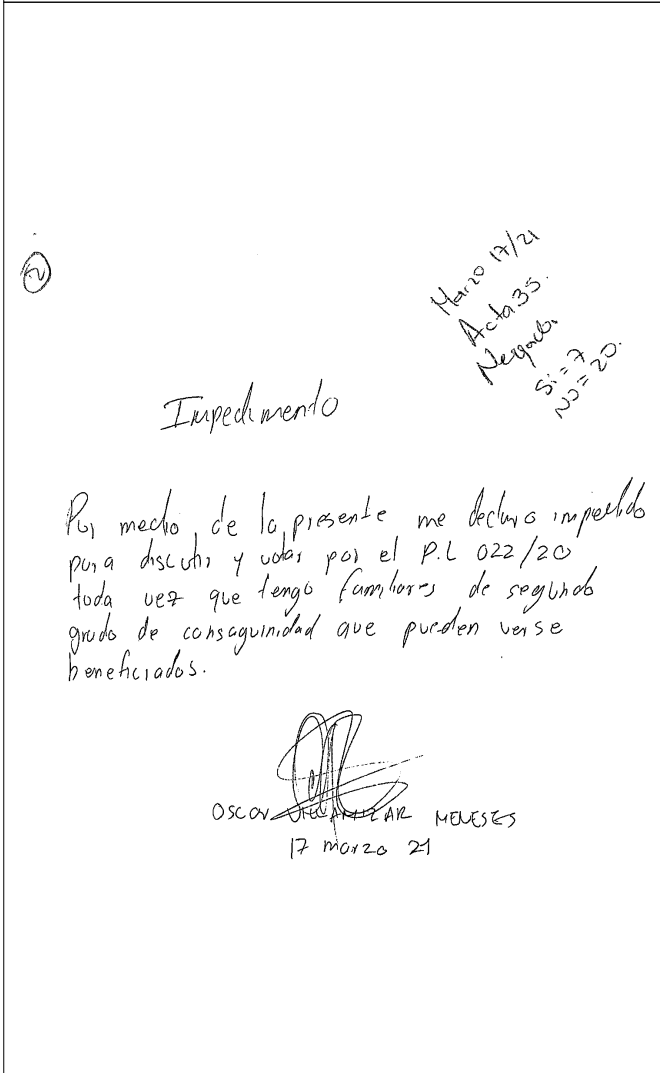 2
Marzo 17/21
Acta 35.
Negado.
Si = 7
NO = 20.
Impedimento
Por medio de la presente me declaro impedido
para discutir y votar por el P.L 022/20
toda vez que tengo familiares de segundo
grado de consaguinidad que pueden verse
beneficiados.
OSCAR VILLAMIZAR MENESES
17 marzo 21